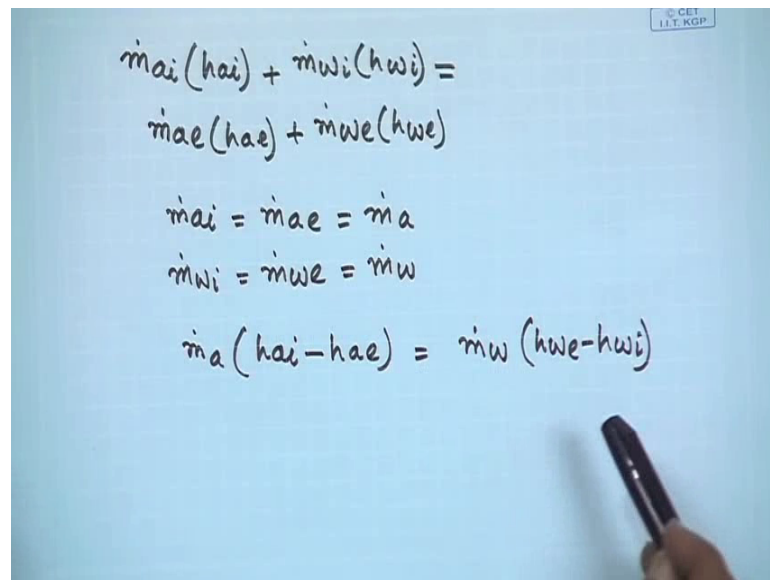 © CET
I.I.T. KGP
ṁai (hai) + ṁwi (hwi) =
ṁae (hae) + ṁwe (hwe)
ṁai = ṁae = ṁa
ṁwi = ṁwe = ṁw
ṁa (hai - hae) = ṁw (hwe - hwi)